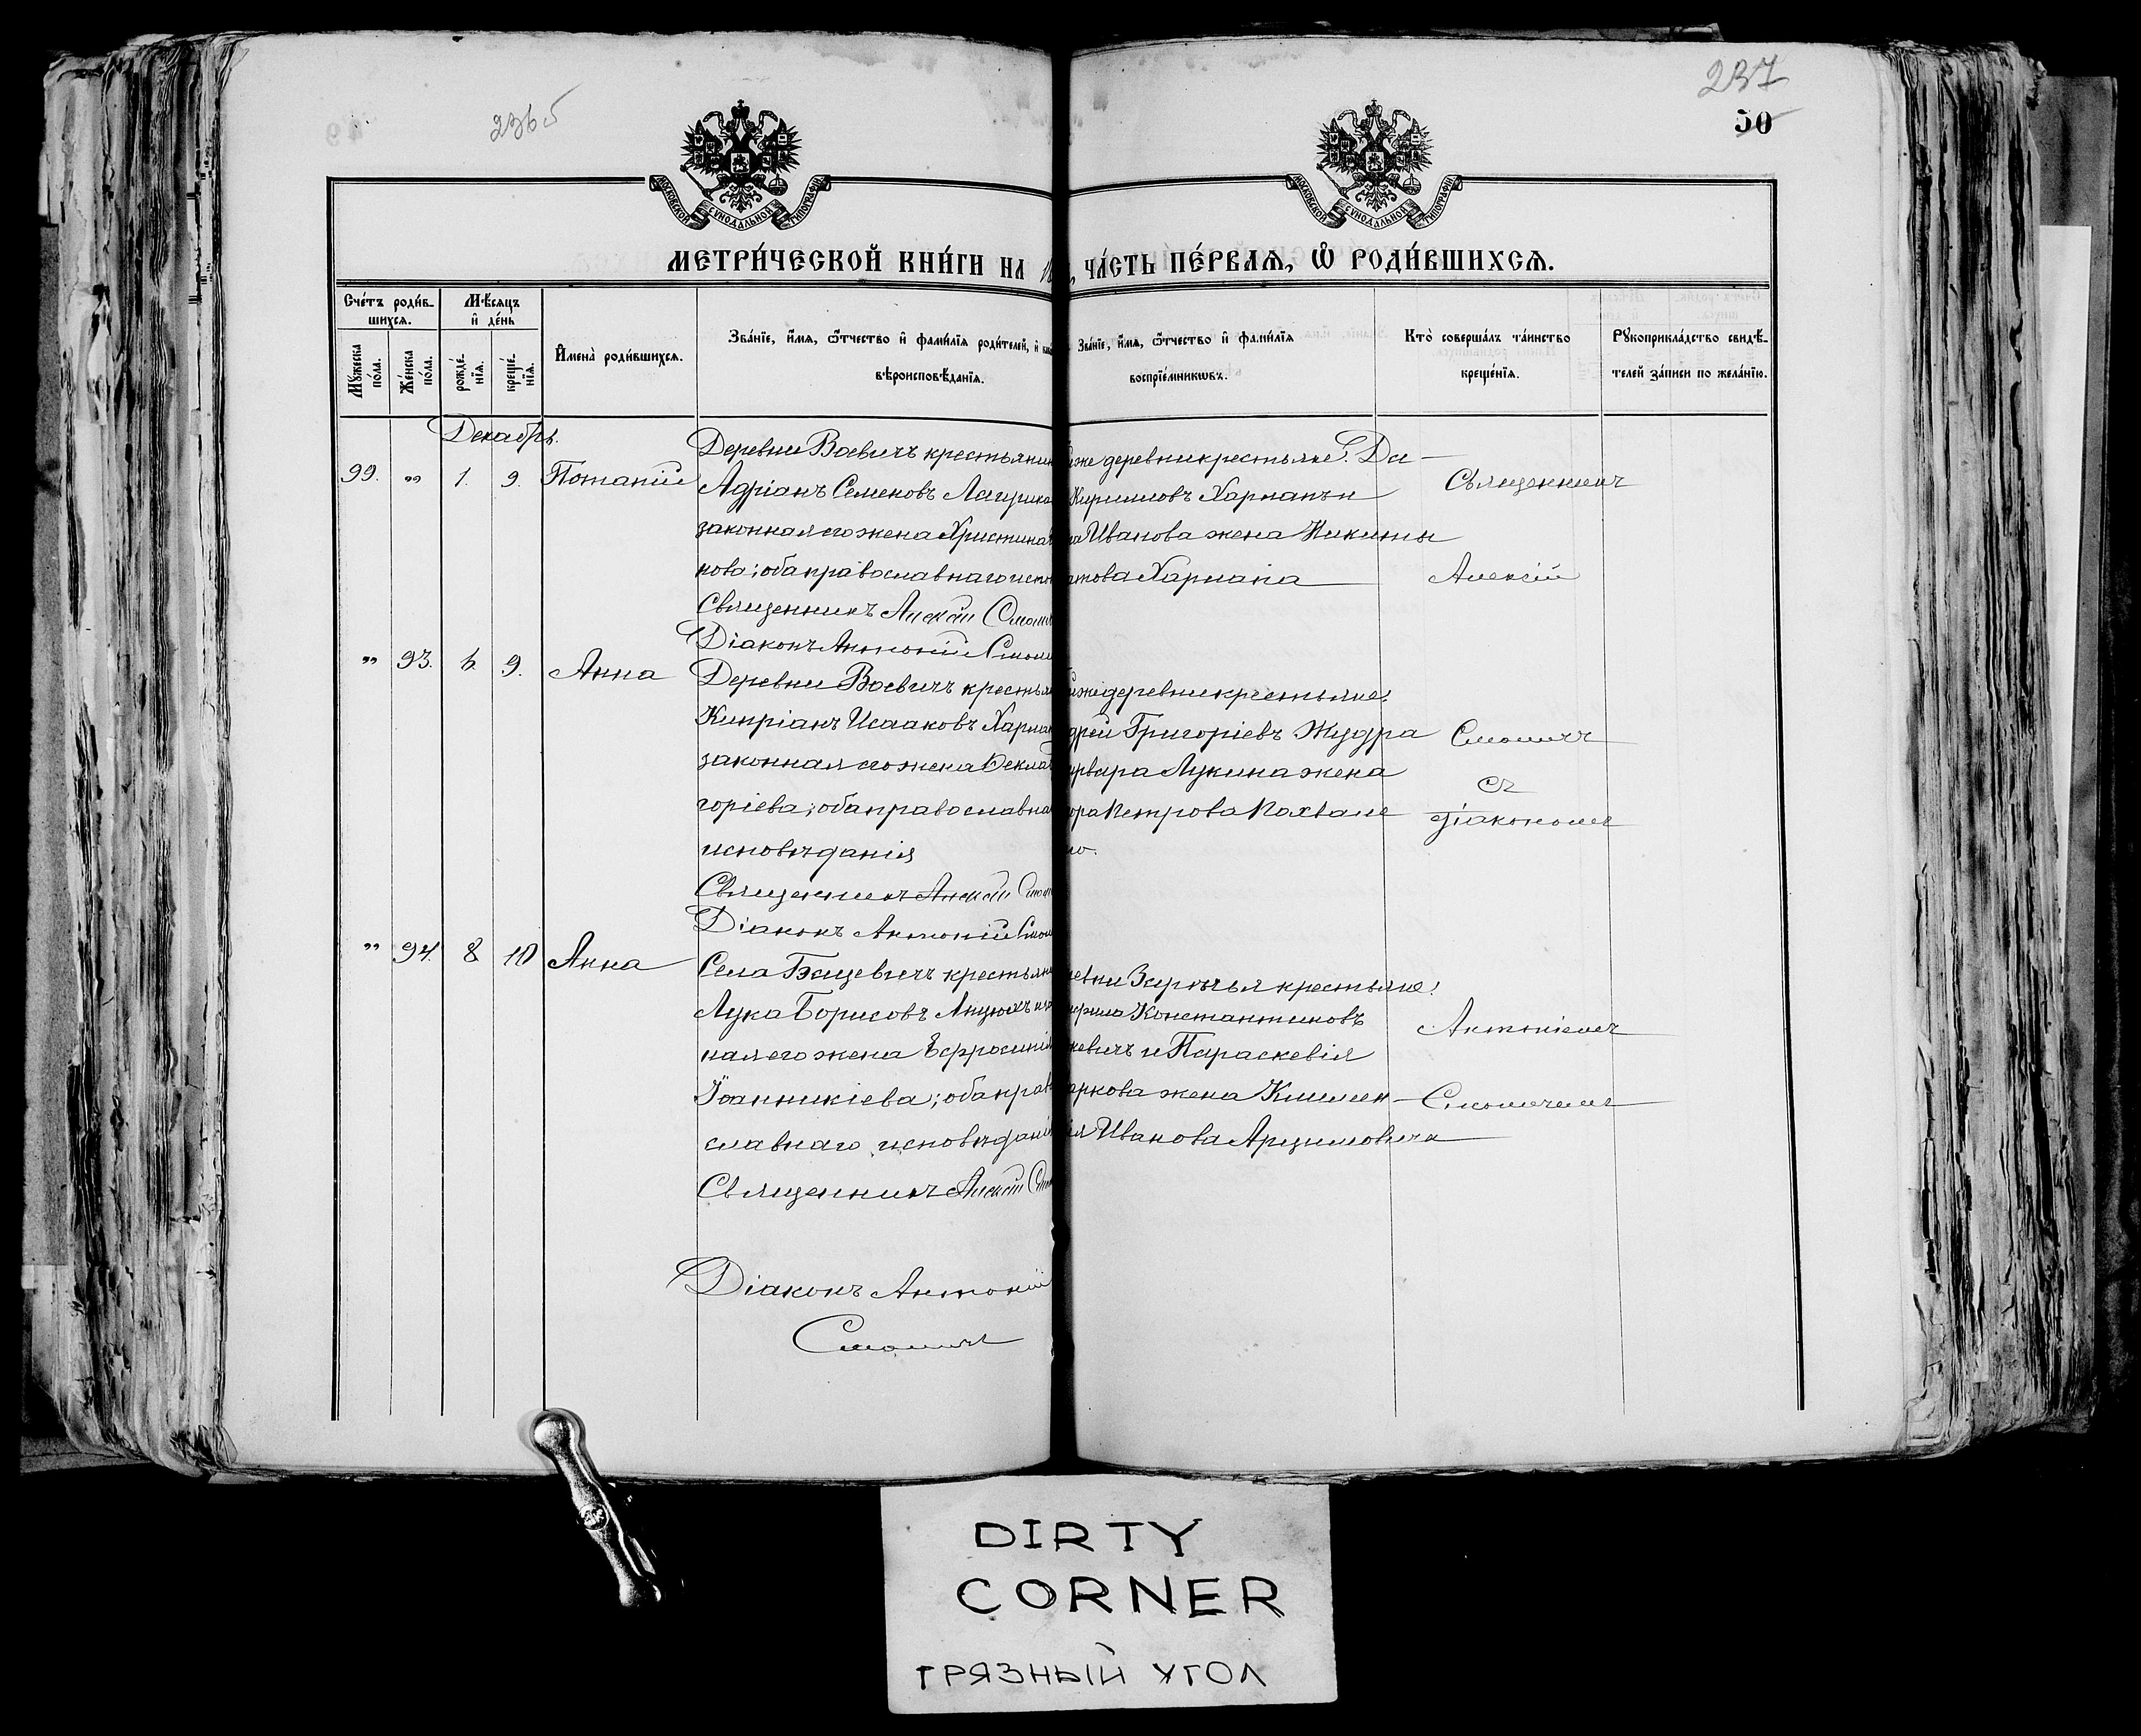 236б
237
50
МОСКОВСКОЙ СѴНОДАЛЬНОЙ ТИПОГРАФІИ
МОСКОВСКОЙ СѴНОДАЛЬНОЙ ТИПОГРАФІИ
МЕТРИ́ЧЕСКОЙ КНИ́ГИ НА
ЧА́СТЬ ПЕ́РВАЯ, Ѡ҆ РОДИ́ВШИХСЯ.
Сче́тъ роди́в-
шихся.
Мѣ́сяцъ
и҆ де́нь
Му́жеска по́ла.
Же́нска по́ла.
рожде́-
нїя.
креще́-
нїя.
И҆мена̀ роди́вшихся.
Зва́нїе, и҆́мя, ѻ҆́тчество и҆ фами́лїя роди́телей, и҆
вѣроисповѣ́данїя.
Зва́нїе, и҆́мя, ѻ҆́тчество и҆ фами́лїя
воспрїе́мникѡвъ.
Кто̀ соверша́лъ та́инство
креще́нїя.
Рꙋкоприкла́дство свидѣ́-
телей за́писи по жела́нїю.
Декабрь.
99. „ 1. 9. Потапій
Деревни Воевичъ крестьянин
Адріанъ Семеновъ
законная его жена Христина
нова; оба православнаго испов
Священникъ Алексій Смоли
Діаконъ Антоній Смоли
же деревни крестьяне: Да-
Кирилловъ Харланъ и
Иванова жена Никиты
Харлапа
Священникъ
Алексій
„ 93. 6. 9. Анна
Деревни Воевичъ крестьян
Кипріанъ Исааковъ Харлап
законная его жена Ѳекла
горіева; оба православна
исповѣданія
Священникъ Алексій Смол
Діаконъ Антоній Смол
же деревни крестьяне:
дрей Григоріевъ Жудра
рвара Лукина жена
ора Петрова Похвале
ю.
Смоличъ
съ
діакономъ
„ 94. 8 10 Анна
Села Бацевичъ крестьян
Лука Борисовъ
ная его жена Ефросинія
Іоанникіева; оба прав
славнаго исповѣдані
Священникъ Алексій См
Діаконъ Антоній
Смоличъ
евни Зарѣчья крестьяне:
Константиновъ
кевичъ и Параскевія
аркова жена Климен-
ія Иванова Арцимовича
Антоніемъ
Смоличемъ
DIRTY
CORNER
ГРЯЗНЫЙ УГОЛ